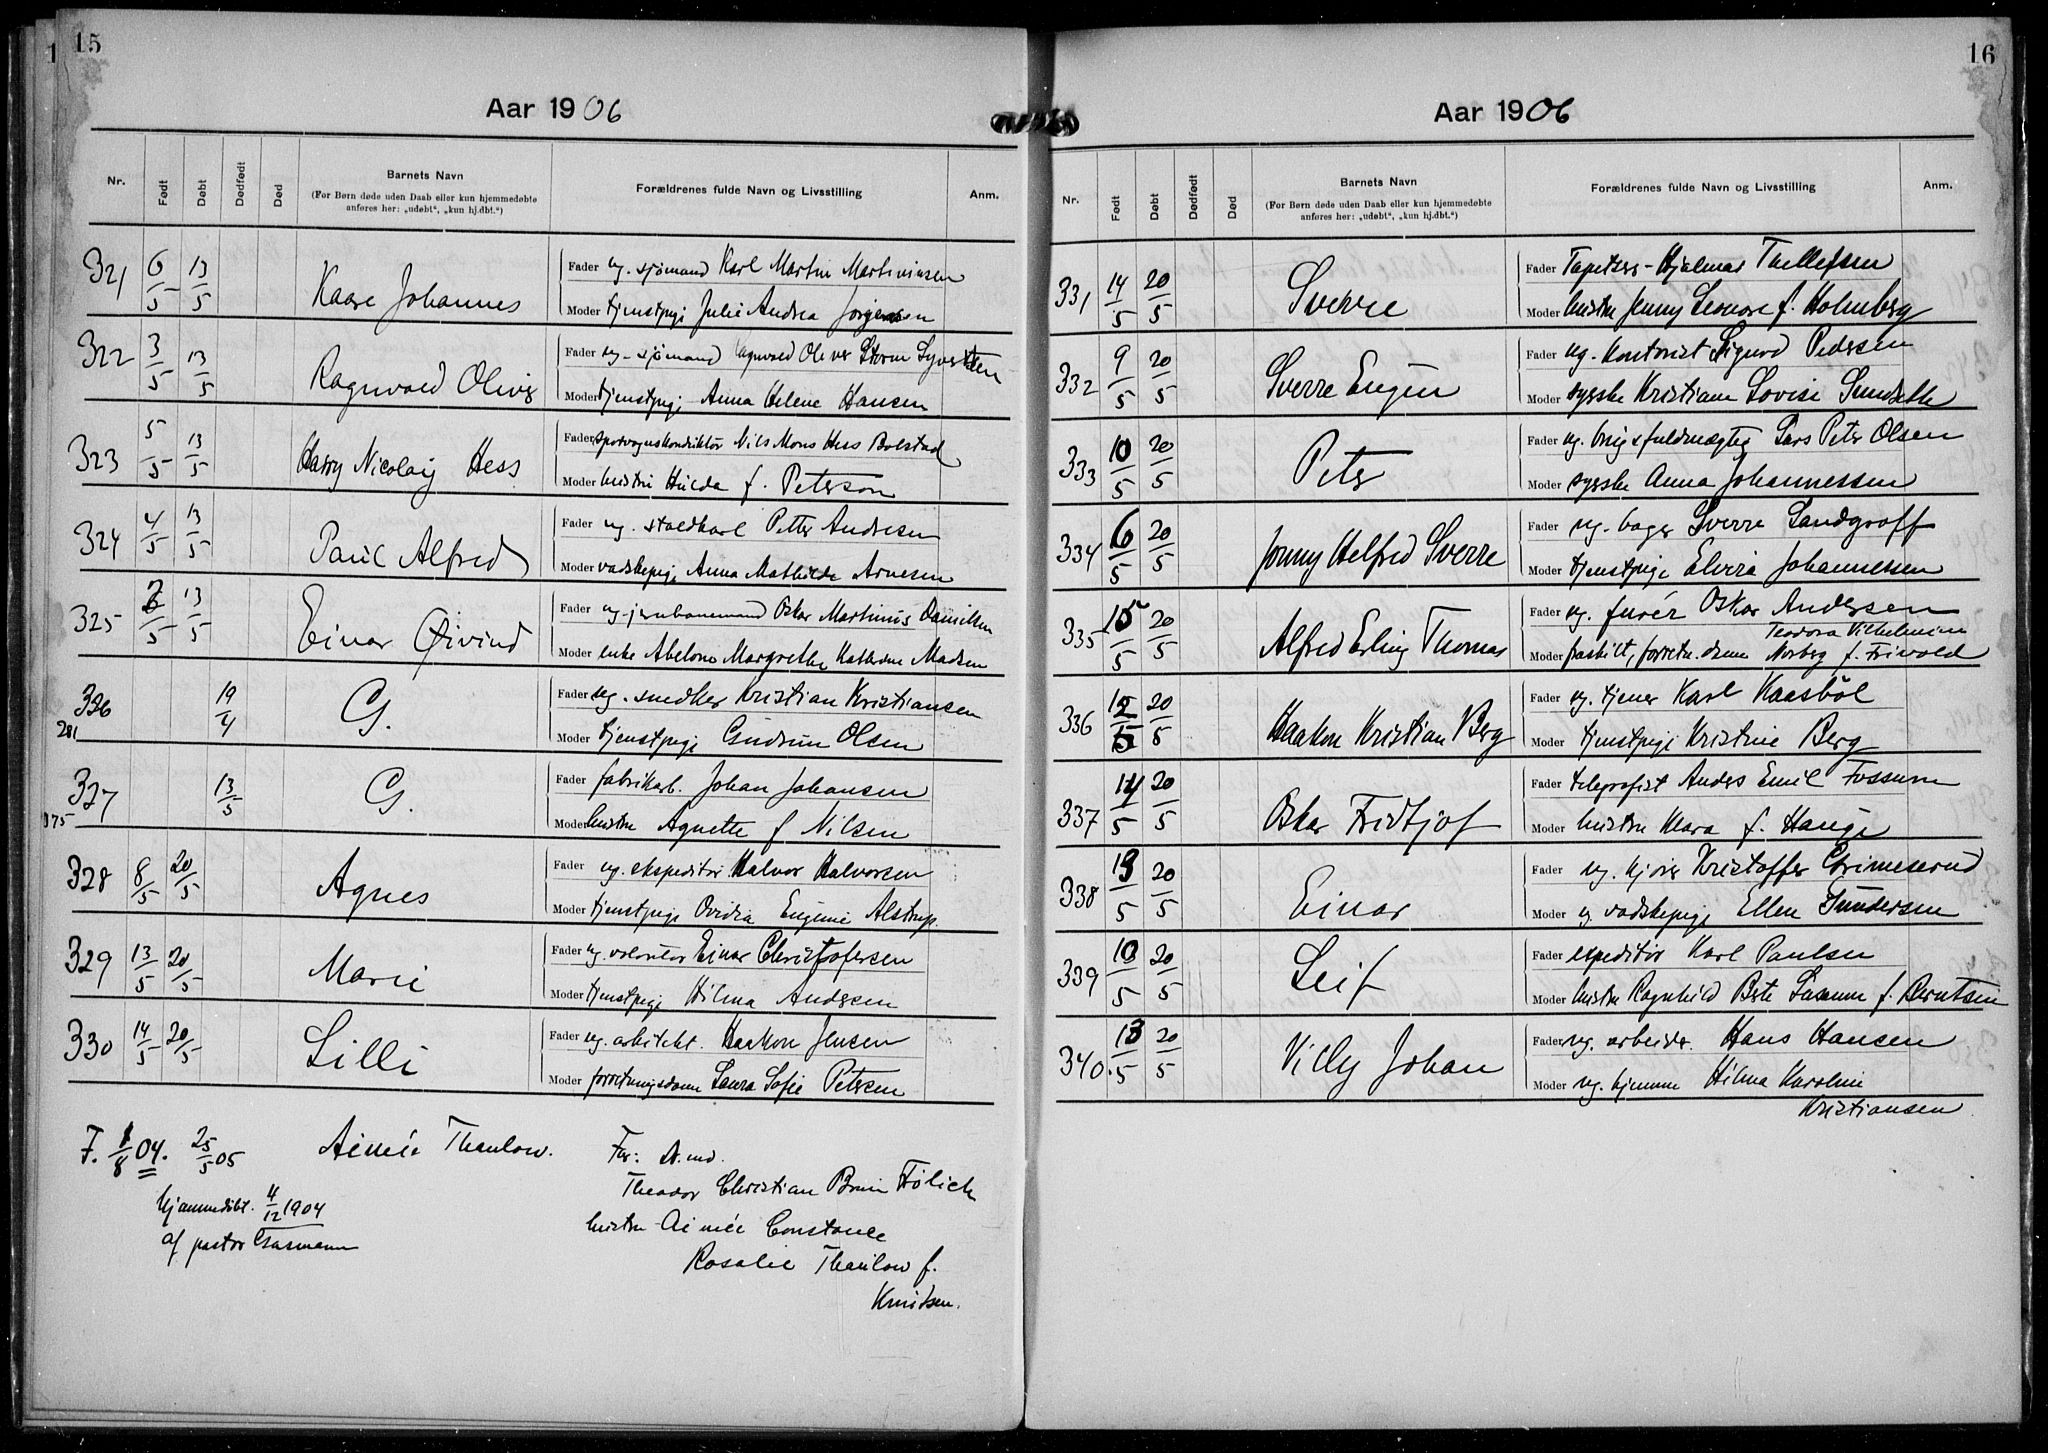 15
Aar 1906
Nr.
Født
Døbt
Dødfødt
Død
Barnets Navn
(For Børn døde uden Daab eller kun hjemmedøbte
anføres her: „udøbt“, „kun hj.dbt.“)
Forældrenes fulde Navn og Livsstilling
Anm.
321 6/5 13/5 Kaare Johannes
Fader ug. sjömand Karl Martin Martiniusen
Moder tjenstpige Julie Andrea Jörgensen
322 3/5 13/5 Ragnvald Oliver
Fader ug. sjömand Ragnvald Oliver Storm Syvertsen
Moder tjenstpige Anna Helene Hansen
323 5/5 13/5 Harry Nicolaij Hess
Fader sporvognskonduktör Nils Mons Hess Bolstad
Moder hustru Hulda f. Peterson
324 4/5 13/5 Paul Alfred
Fader ug. staldkarl Petter Andresen
Moder vadskepige Anna Mathilde Arnesen
325 /5 13/5 Einar Øivind
Fader ug. jernbanemand Oskar Martinus Danielsen
Moder enke Abelone Margrethe Kathrine Madsen
336 19/4 G.
281
Fader ug. snedker Kristian Kristiansen
Moder tjenstpige Gudrun Olsen
327 13/5 G.
175
Fader fabrikarb. Johan Johansen
Moder hustru Agnette f Nilsen
328 8/5 20/5 Agnes
Fader ug. ekspeditör Halvor Halvorsen
Moder tjenstpige Ovidia Eugenie Alstrup.
329 13/5 20/5 Marie
Fader ug. volontör Einar Christofersen
Moder tjenstpige Hilma Andersen
330 14/5 20/5 Lilli
Fader ug. arkitekt. Haakon Jensen
Moder forretningsdame Laura Sofie Petersen
F. 1/8 04. 25/5 05 Aimée Thaulow.
hjemmedöbt. 4/12 1904
af pastor
Far: Dr. md.
Theodor Christian Brun Frölich
hustru Aimée Constance
Rosalie Thaulow f.
Knudsen.
16
Aar 1906
Nr.
Født
Døbt
Dødfødt
Død
Barnets Navn
(For Børn døde uden Daab eller kun hjemmedøbte
anføres her: „udøbt“, „kun hj.dbt.“)
Forældrenes fulde Navn og Livsstilling
Anm.
331 14/5 20/5 Sverre
Fader Tapetser - Hjalmar Thellefsen
Moder hustru Jenny Leonore f. Holmberg
332 9/5 20/5 Sverre Eugen
Fader ug. kontorist Sigurd Pedersen
Moder syerske Kristiane Lovise
333 10/5 20/5 Peter
Fader ug. fuldmægtig Lars Peter Olsen
Moder syerske Anna Johannessen
334 6/5 20/5 Jonny Helfred Sverre
Fader ug. bager Sverre Landgraff
Moder tjenstpige Elvira Johannessen
335 15/5 20/5 Alfred Erling Thomas
Fader ug. furér Oskar Andersen
Teodora Vilhelmine
Moder fraskilt, forretn. dame Norberg f. Frivold
336 12/5 20/5 Haakon Kristian Berg
Fader ug. tjener Karl Kaasböl
Moder tjenstpige Kristine Berg
337 14/5 20/5 Oskar Fridtjof
Fader telegrafist Anders Emil Fossum
Moder hustru Klara f. Hauge
338 13/5 20/5 Einar
Fader ug. kjörer Kristoffer Grimesrud
Moder ug. vadskepige Ellen Gundersen
339 10/5 20/5 Leif
Fader expeditör Karl Paulsen
Moder hustru Ragnhild f. Berntsen
340. 13/5 20/5 Villy Johan
Fader ug. arbeider. Hans Hansen
Moder ug. hjemme Hilma Karoline
Kristiansen